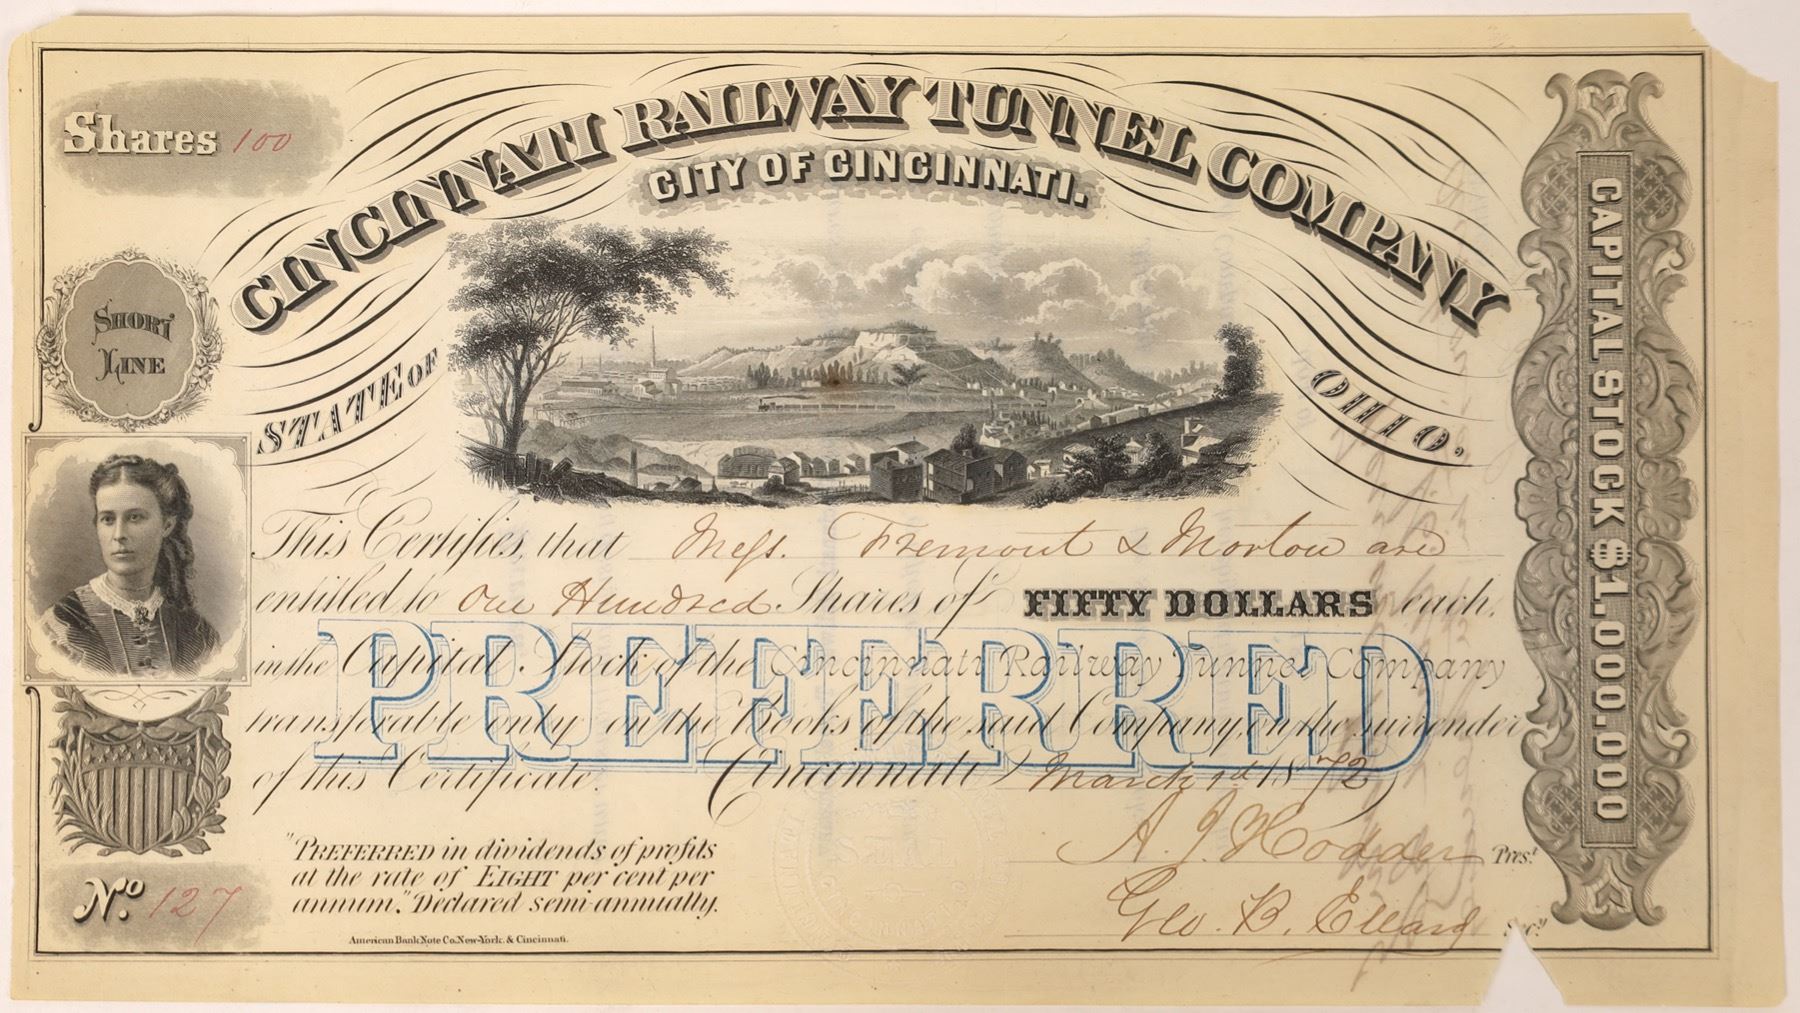 Shares 100
CINCINNATI RAILWAY TUNNEL COMPANY
CITY OF CINCINNATI.
STATE OF OHIO.
SHORT
LINE
CAPITAL STOCK $1.000.000
This Certifies, that Mess. Fremont & Morton are
entitled to One Hundred Shares of FIFTY DOLLARS each,
in the Capital Stock of the Cincinnati Railway Tunnel Company
PREFERRED
transferable only on the Books of the said Company, on the surrender
of this Certificate. Cincinnati, March 1st 1872
"PREFERRED in dividends of profits
at the rate of EIGHT per cent per
annum." Declared semi-annually.
A. J. Hodder Prest.
Geo. B. Ellard Secy
No. 127
American Bank Note Co. New-York. & Cincinnati.